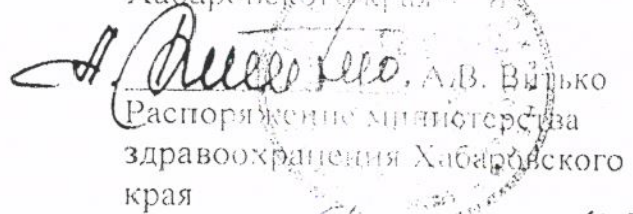 Хабаровского края
А. Витько, А.В. Витько
Распоряжение министерства
здравоохранения Хабаровского
края